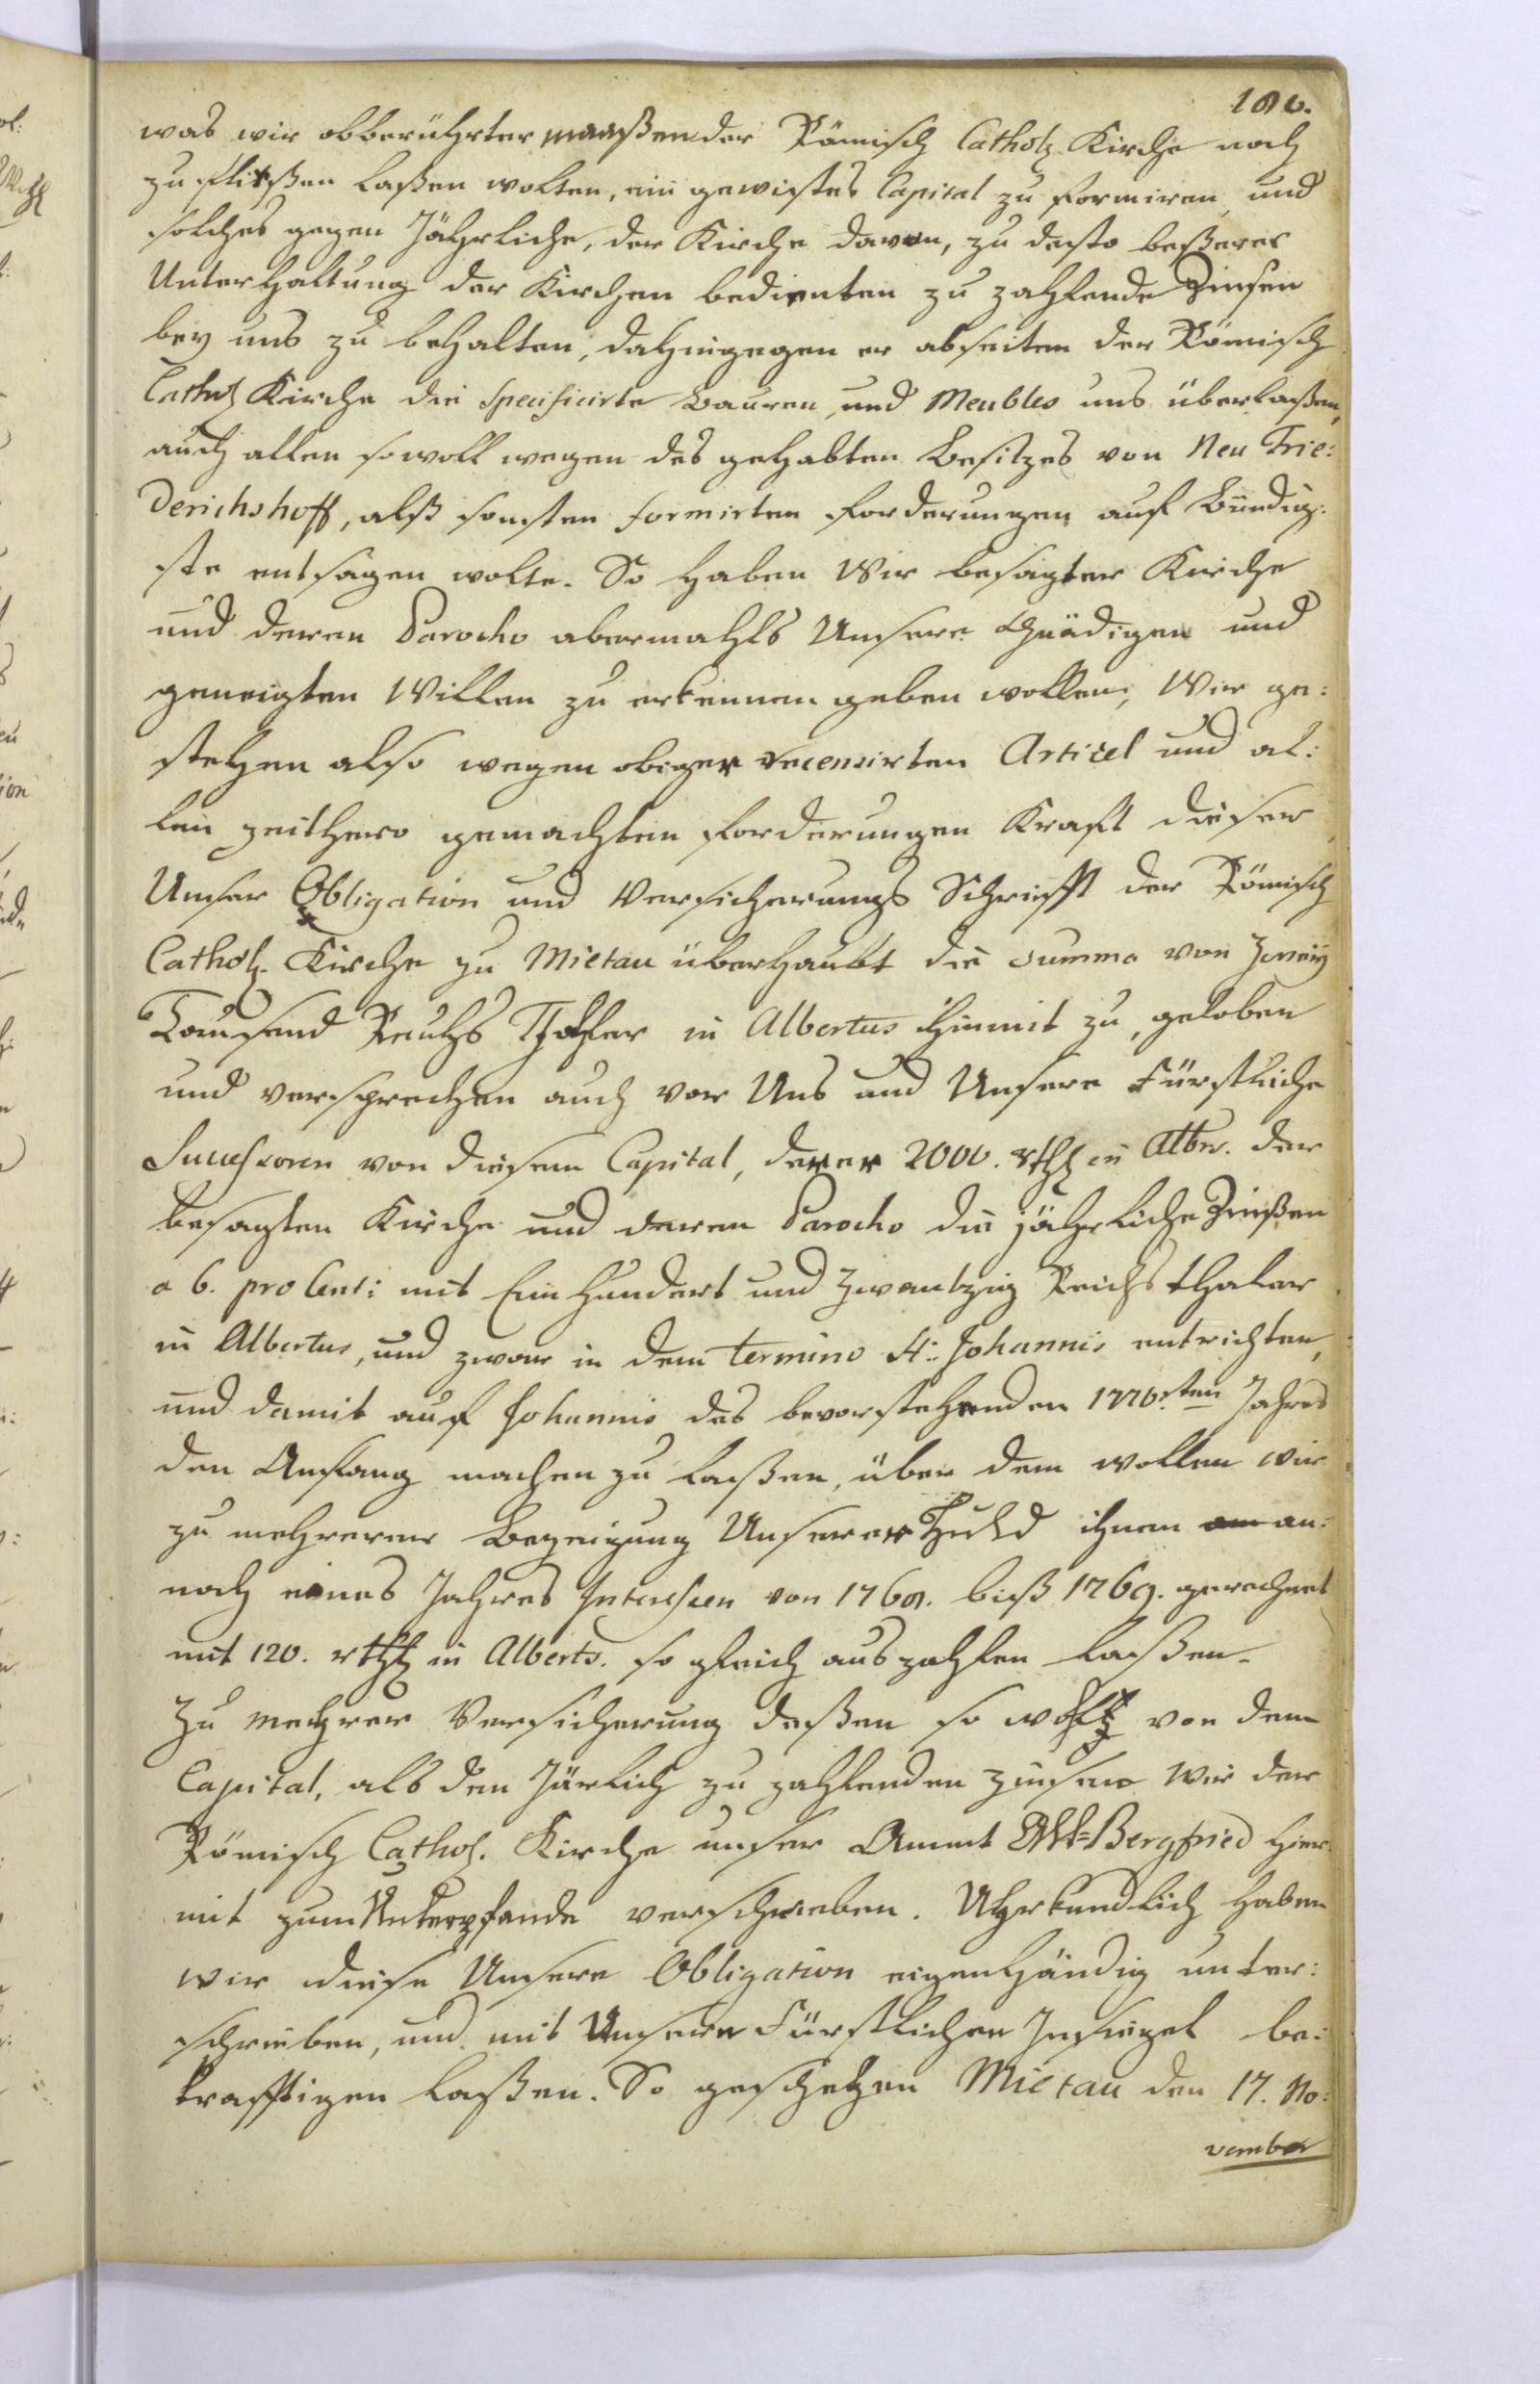 was wir obberührter maaßen der Römisch Cathol. Kirche noch
zu fließen laßen wolten, ein gewißes Capital zu formiren, und
solches gegen Jährliche, der Kirche davon, zu desto beßerer
Unterhaltung der Kirchen bedienten zu zahlende Zinsen
bey uns zu behalten, dahingegen er abseiten der Römisch
Cathol Kirche die Specificirte Bauren, und Meubles uns überlaßen,
auch allen sowoll wegen des gehabten Besitzes von Neu Frie:
derichshoff, alß sonsten formirten Forderungen auf Bündig:
ste entsagen wolte. So haben Wir besagter Kirche
und deren Parocho abermahls Unsere Gnädigen und
geneigten Willen zu erkennen geben wollen; Wir ge:
stehen also wegen obiger recensirten Articel und al:
len zeithero gemachten Forderungen Kraft dieser
Unser Obligation und Versicherungs Schrifft der Römisch
Cathol. Kirche zu Mietau überhaubt die Summa von Zweÿ
Tausend Reichs Thaler in Albertus hiemit zu, geloben
und versprechen auch vor Uns und Unsere Fürstliche
Successoren von diesem Capital, derer 2000. rthl in Albr. der
besagten Kirche und deren Parocho die jährliche Zinßen
a 6. pro Cent: mit Ein Hundert und Zwantzig Reichsthaler
in Albertus, und zwar in dem Termino St: Johannis entrichten,
und damit auf Johannis des bevorstehenden 1770.sten Jahres
den Anfang machen zu laßen, über dem wollen wir
zu mehrerer Bezeigung Unserer Huld ihnen an:
noch eines Jahres Interessen von 1768. biß 1769. gerechnet
mit 120. rthl in Alberts. so gleich auszahlen laßen.
Zu mehrer Versicherung deßen so wohl von dem
Capital, als den Järlich zu zahlenden Zinsen Wir der
Römisch Cathol. Kirche unser Ammt Alt-Bergfried hier
mit zum Unterpfande verschrieben. Uhrkundlich haben
wir diese Unsere Obligation eigenhändig unter:
schrieben, und mit Unserm Fürstlichen Insiegel be:
kräfftigen laßen. So geschehen Mietau den 17. No:
vember